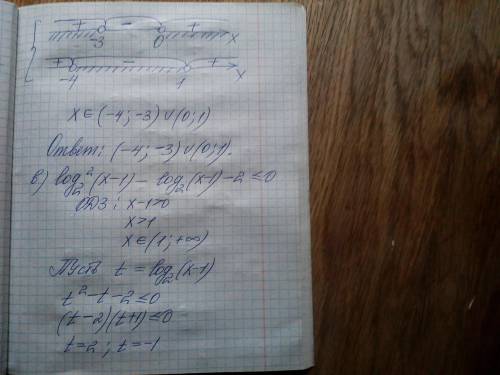 + - +
-3 0 x
+ - +
-4 1 x
x ∈ (-4; -3) ∪ (0; 1)
Ответ: (-4; -3) ∪ (0; 1).
в) log₂²(x-1) - log₂(x-1) - 2 ≤ 0
ОДЗ: x-1>0
x>1
x ∈ (1; +∞)
Пусть t = log₂(x-1)
t² - t - 2 ≤ 0
(t-2)(t+1) ≤ 0
t=2; t=-1